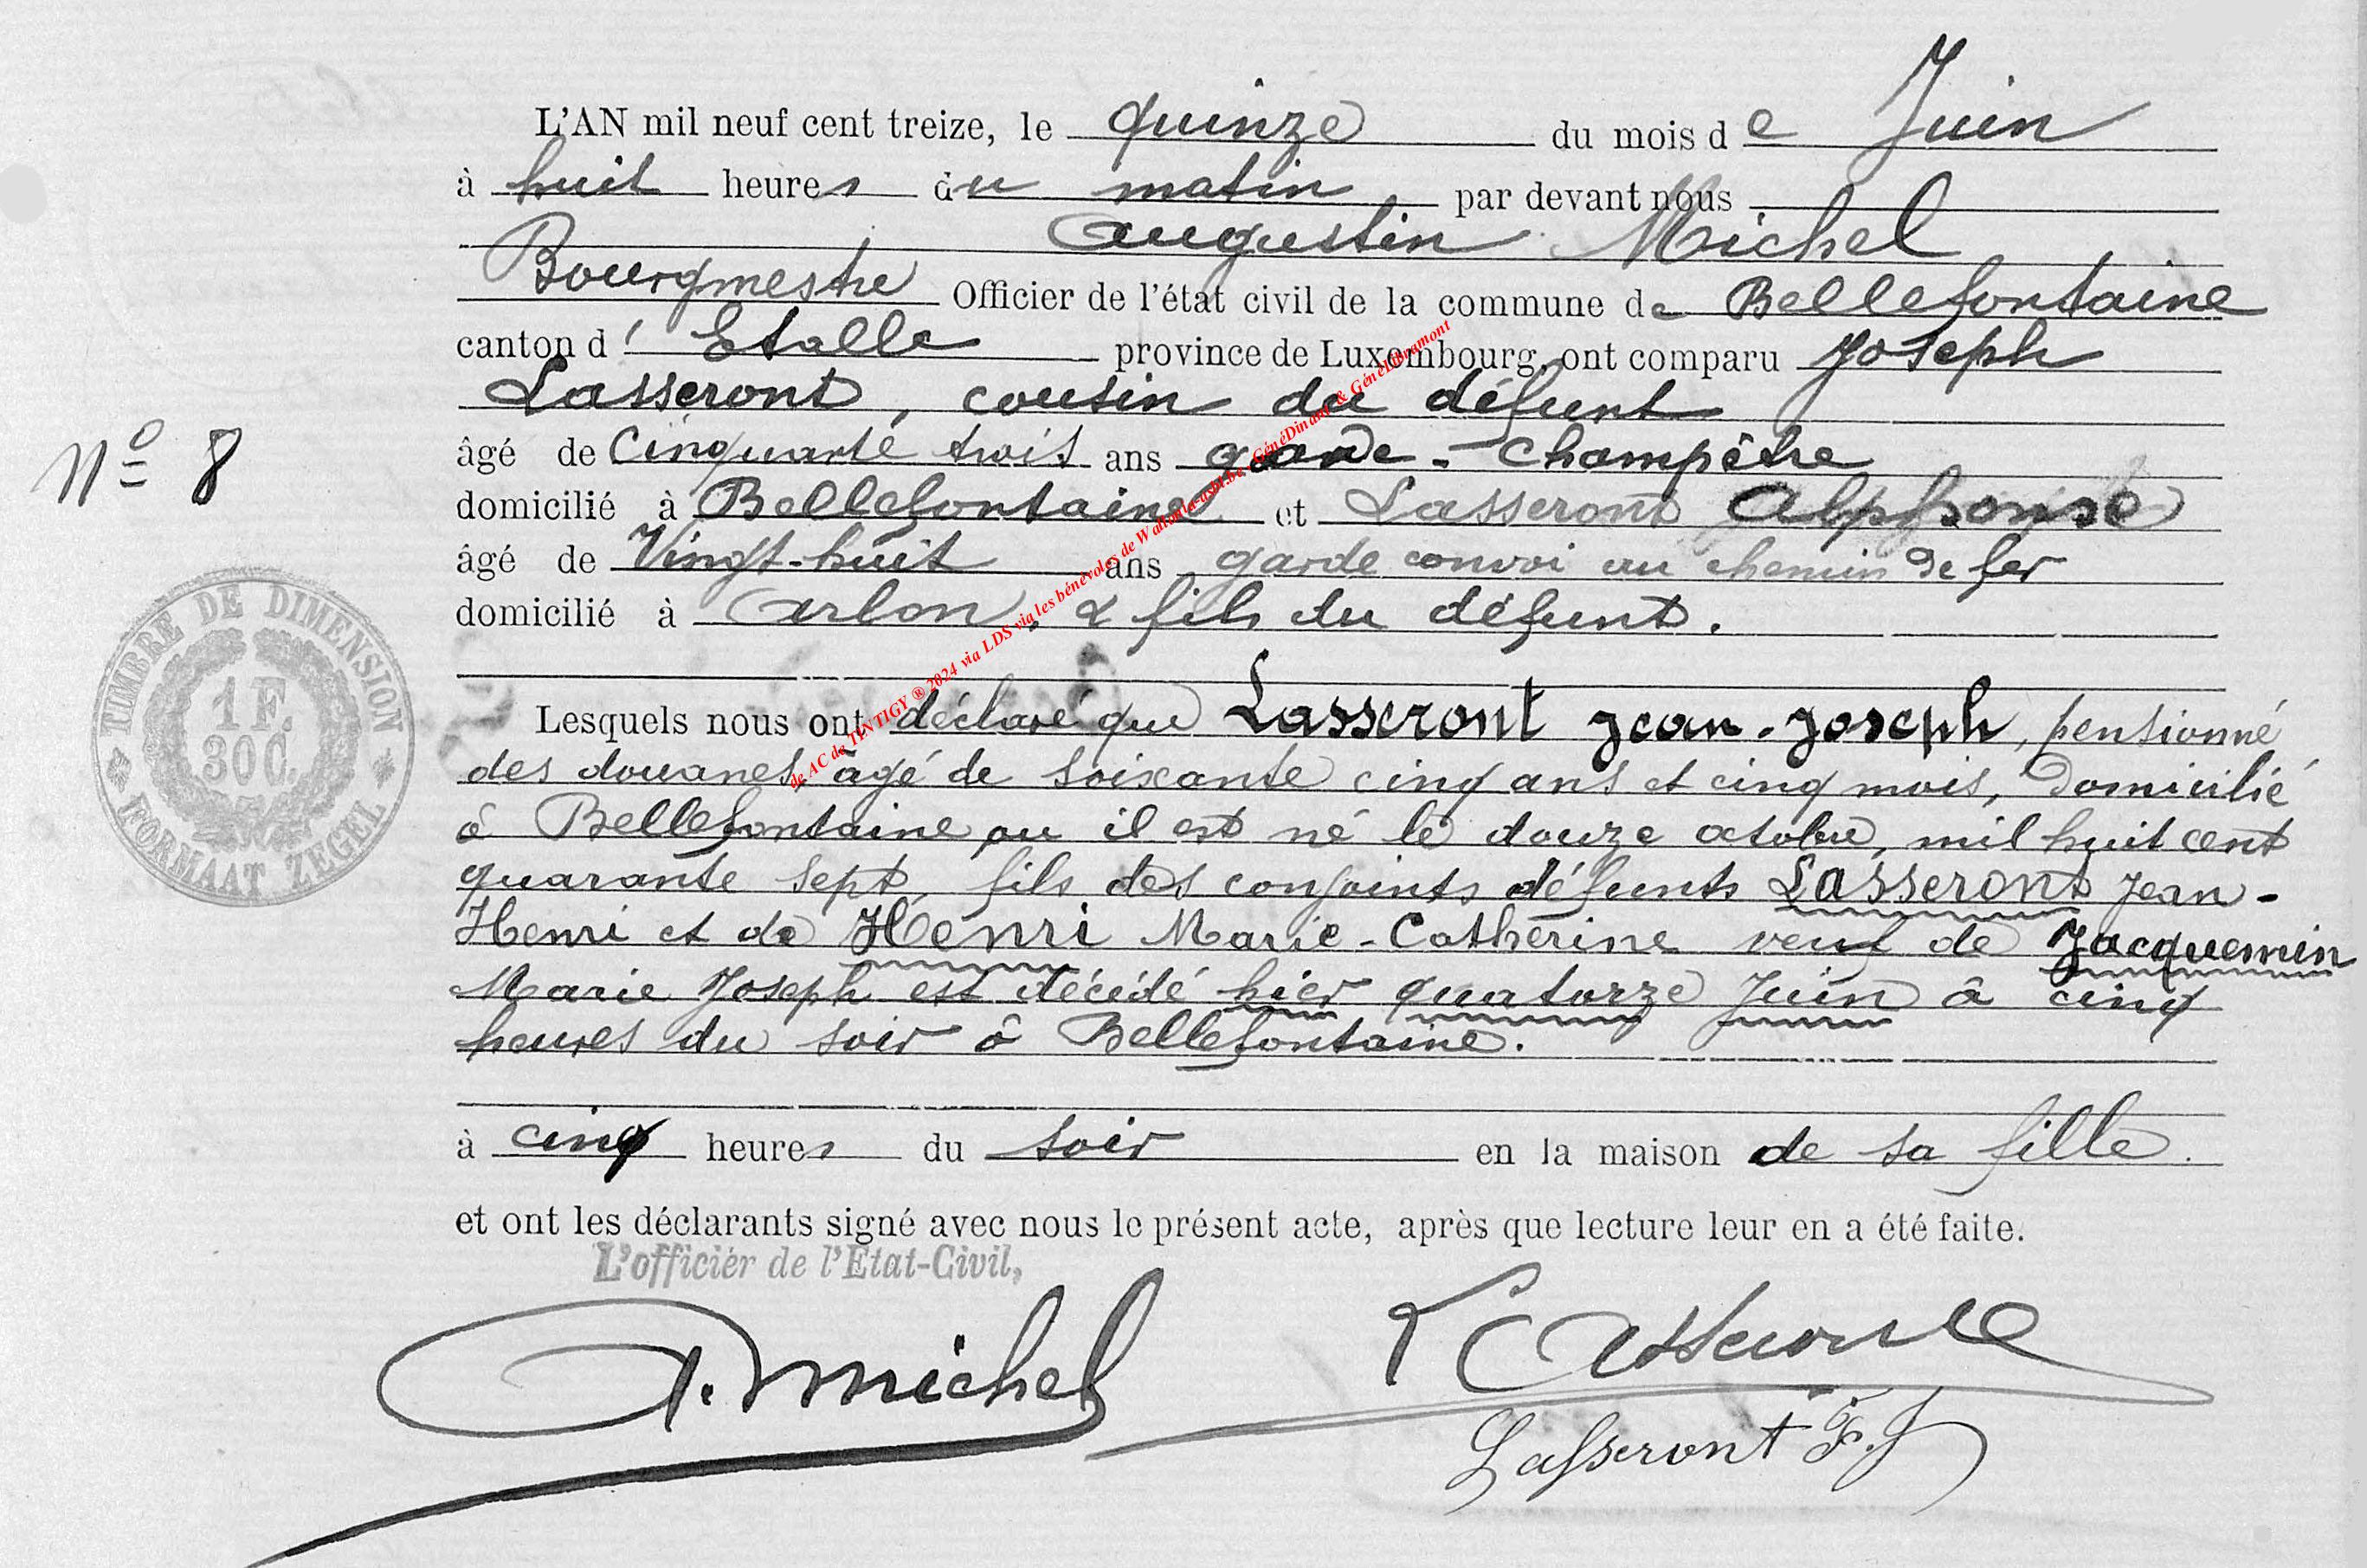 L'AN mil neuf cent treize, le quinze du mois de Juin
à huit heures du matin par devant nous
Augustin Michel
Bourgmestre Officier de l'état civil de la commune de Bellefontaine
canton d' Etalle province de Luxembourg, ont comparu Joseph
Lasseront, cousin du défunt
N° 8
âgé de Cinquante trois ans garde-champêtre
domicilié à Bellefontaine et Lasseront Alphonse
âgé de Vingt-huit ans garde convoi au chemin de fer
domicilié à Arlon, & fils du défunt.
TIMBRE DE DIMENSION
1 F.
30 C.
FORMAAT ZEGEL
Lesquels nous ont déclaré que Lasseront Jean-Joseph, pensionné
des douanes âgé de soixante cinq ans et cinq mois, Domicilié
à Bellefontaine ou il est né le douze octobre, mil huit cent
quarante sept, fils des conjoints défunts Lasseront Jean-
Henri et de Henri Marie-Cathérine veuf de Jacquemin
Marie Joseph est décédé hier quatorze Juin à cinq
heures du soir à Bellefontaine.
à cinq heures du soir en la maison de sa fille.
et ont les déclarants signé avec nous le présent acte, après que lecture leur en a été faite.
L'officiér de l'Etat-Civil,
A. Michel
Lasseront
Lasseront F. J
de AC de TINTIGY ® 2024 via LDS via les bénévoles de Wallonia-asbl.be, GénéDinant & GénéLibramont